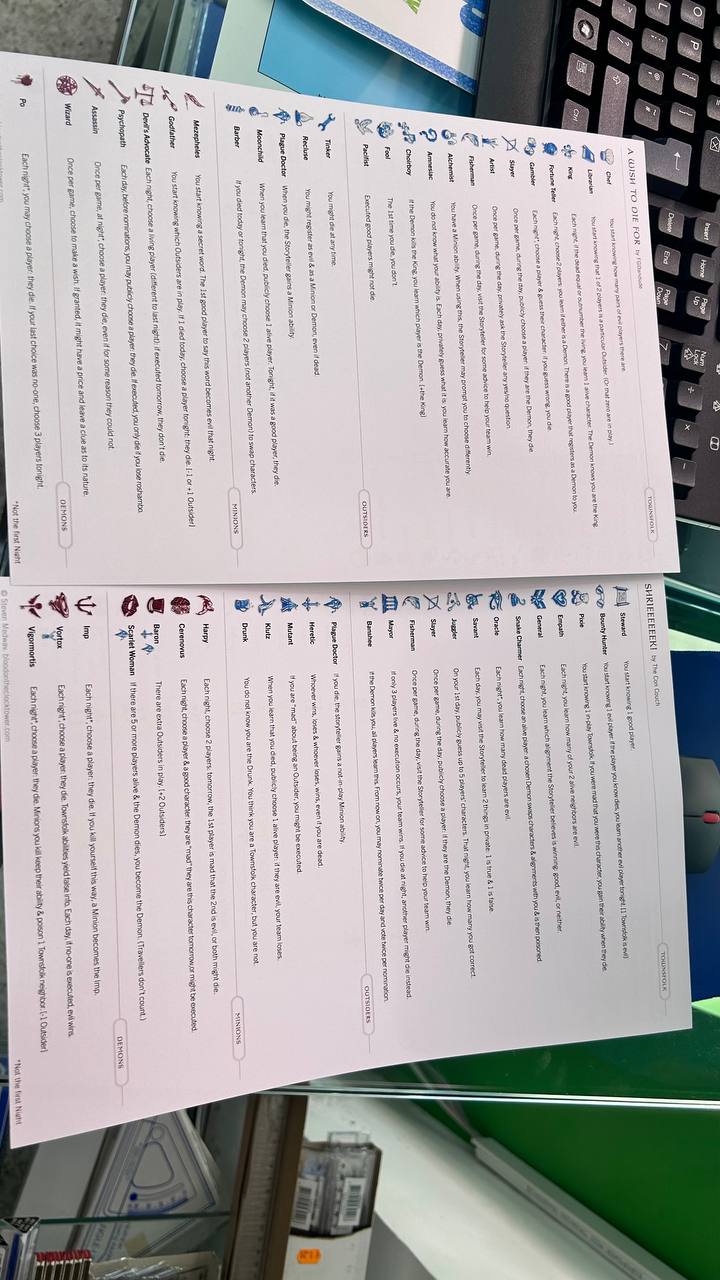 A WISH TO DIE FOR
TOWNSFOLK
Chef You start knowing how many pairs of evil players there are.
Librarian You start knowing that 1 of 2 players is a particular Outsider. (Or that zero are in play.)
King Each night, if the dead equal or outnumber the living, you learn 1 alive character. The Demon knows you are the King.
Fortune Teller Each night, choose 2 players: you learn if either is a Demon. There is a good player that registers as a Demon to you.
Gambler Each night*, choose a player & guess their character: if you guess wrong, you die.
Slayer Once per game, during the day, publicly choose a player: if they are the Demon, they die.
Artist Once per game, during the day, privately ask the Storyteller any yes/no question.
Fisherman Once per game, during the day, visit the Storyteller for some advice to help your team win.
Alchemist You have a Minion ability. When using this, the Storyteller may prompt you to choose differently.
Amnesiac You do not know what your ability is. Each day, privately guess what it is: you learn how accurate you are.
Choirboy If the Demon kills the King, you learn which player is the Demon. [+the King]
Fool The 1st time you die, you don't.
Pacifist Executed good players might not die.
OUTSIDERS
Tinker You might die at any time.
Recluse You might register as evil & as a Minion or Demon, even if dead.
Plague Doctor When you die, the Storyteller gains a Minion ability.
Moonchild When you learn that you died, publicly choose 1 alive player. Tonight, if it was a good player, they die.
Barber If you died today or tonight, the Demon may choose 2 players (not another Demon) to swap characters.
MINIONS
Mezepheles You start knowing a secret word. The 1st good player to say this word becomes evil that night.
Godfather You start knowing which Outsiders are in play. If 1 died today, choose a player tonight: they die. [-1 or +1 Outsider]
Devil's Advocate Each night, choose a living player (different to last night): if executed tomorrow, they don't die.
Psychopath Each day, before nominations, you may publicly choose a player: they die. If executed, you only die if you lose roshambo.
Assassin Once per game, at night*, choose a player: they die, even if for some reason they could not.
Wizard Once per game, choose to make a wish. If granted, it might have a price and leave a clue as to its nature.
DEMONS
Po Each night*, you may choose a player: they die. If your last choice was no-one, choose 3 players tonight.
*Not the first Night
SHRIEEEEEK! by The Cirt Couch
TOWNSFOLK
Steward You start knowing 1 good player.
Bounty Hunter You start knowing 1 evil player. If the player you know dies, you learn another evil player tonight. [1 Townsfolk is evil]
Pixie You start knowing 1 in-play Townsfolk. If you were mad that you were this character, you gain their ability when they die.
Empath Each night, you learn how many of your 2 alive neighbors are evil.
General Each night, you learn which alignment the Storyteller believes is winning: good, evil, or neither.
Snake Charmer Each night, choose an alive player: a chosen Demon swaps characters & alignments with you & is then poisoned.
Oracle Each night*, you learn how many dead players are evil.
Savant Each day, you may visit the Storyteller to learn 2 things in private: 1 is true & 1 is false.
Juggler On your 1st day, publicly guess up to 5 players' characters. That night, you learn how many you got correct.
Slayer Once per game, during the day, publicly choose a player: if they are the Demon, they die.
Fisherman Once per game, during the day, visit the Storyteller for some advice to help your team win.
Mayor If only 3 players live & no execution occurs, your team wins. If you die at night, another player might die instead.
Banshee If the Demon kills you, all players learn this. From now on, you may nominate twice per day and vote twice per nomination.
OUTSIDERS
Plague Doctor If you die, the storyteller gains a not-in-play Minion ability.
Heretic Whoever wins, loses & whoever loses, wins, even if you are dead.
Mutant If you are "mad" about being an Outsider, you might be executed.
Klutz When you learn that you died, publicly choose 1 alive player: if they are evil, your team loses.
Drunk You do not know you are the Drunk. You think you are a Townsfolk character, but you are not.
MINIONS
Harpy Each night, choose 2 players: tomorrow, the 1st player is mad that the 2nd is evil, or both might die.
Cerenovus Each night, choose a player & a good character: they are "mad" they are this character tomorrow, or might be executed.
Baron There are extra Outsiders in play. [+2 Outsiders]
Scarlet Woman If there are 5 or more players alive & the Demon dies, you become the Demon. (Travellers don't count.)
DEMONS
Imp Each night*, choose a player: they die. If you kill yourself this way, a Minion becomes the Imp.
Vortox Each night*, choose a player: they die. Townsfolk abilities yield false info. Each day, if no-one is executed, evil wins.
Vigormortis Each night*, choose a player: they die. Minions you kill keep their ability & poison 1 Townsfolk neighbor. [-1 Outsider]
*Not the first Night
© Steven Medway, bloodontheclocktower.com
Insert
Home
Page Up
Num Lock
Delete
End
Page Down
Ctrl
P
O
L